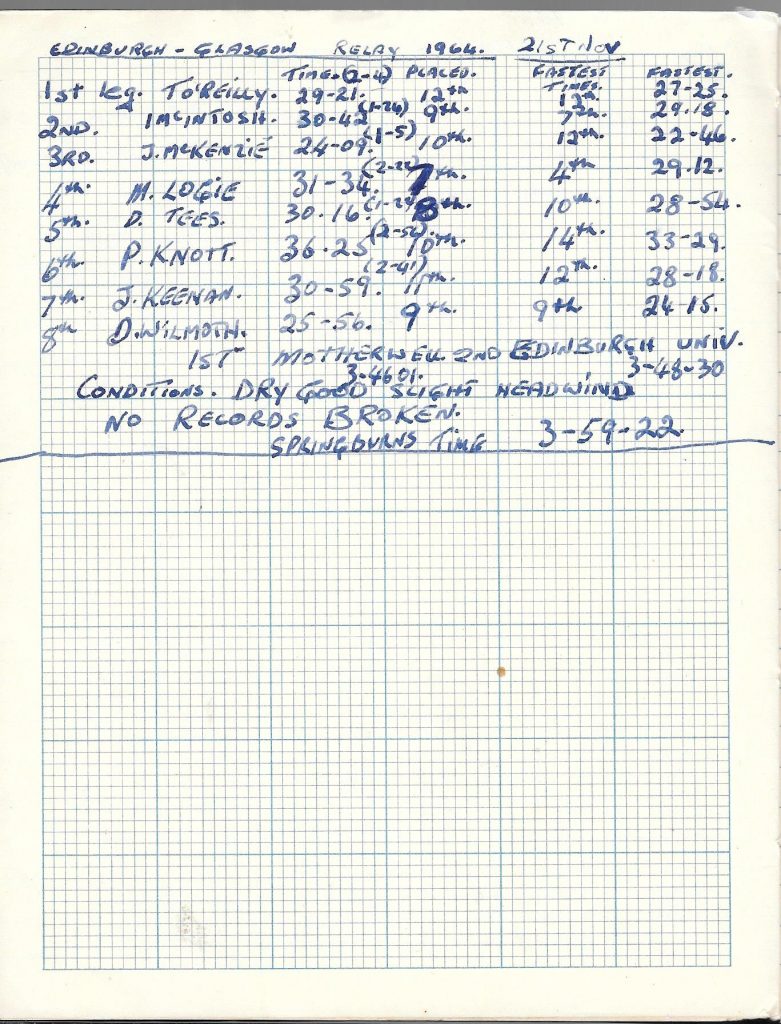 EDINBURGH - GLASGOW RELAY 1964. 21ST NOV
TIME. (2-4) PLACED. FASTEST TIMES. FASTEST.
1st leg. T.O'REILLY. 29-21. 12th 12th 27-25.
2ND. I MCINTOSH. 30-42 (1-24) 9th. 7th. 29.18.
3RD. J. MCKENZIE 24-09. (1-5) 10th. 12th 22-46.
4th. M. LOGIE 31-34. 7th. 4th 29.12.
5th. D. TEES. 30.16. 8th. 10th. 28-54.
6th. P. KNOTT. 36-25 10th. 14th. 33-29.
7th. J. KEENAN. 30-59. (2-41) 11th. 12th. 28-18.
8th D. WILMOTH. 25-56. 9th. 9th 24-15.
1ST MOTHERWELL 2ND EDINBURGH UNIV.
3-4601. 3-48-30
CONDITIONS. DRY GOOD SLIGHT HEADWIND
NO RECORDS BROKEN.
SPRINGBURNS TIME 3-59-22.